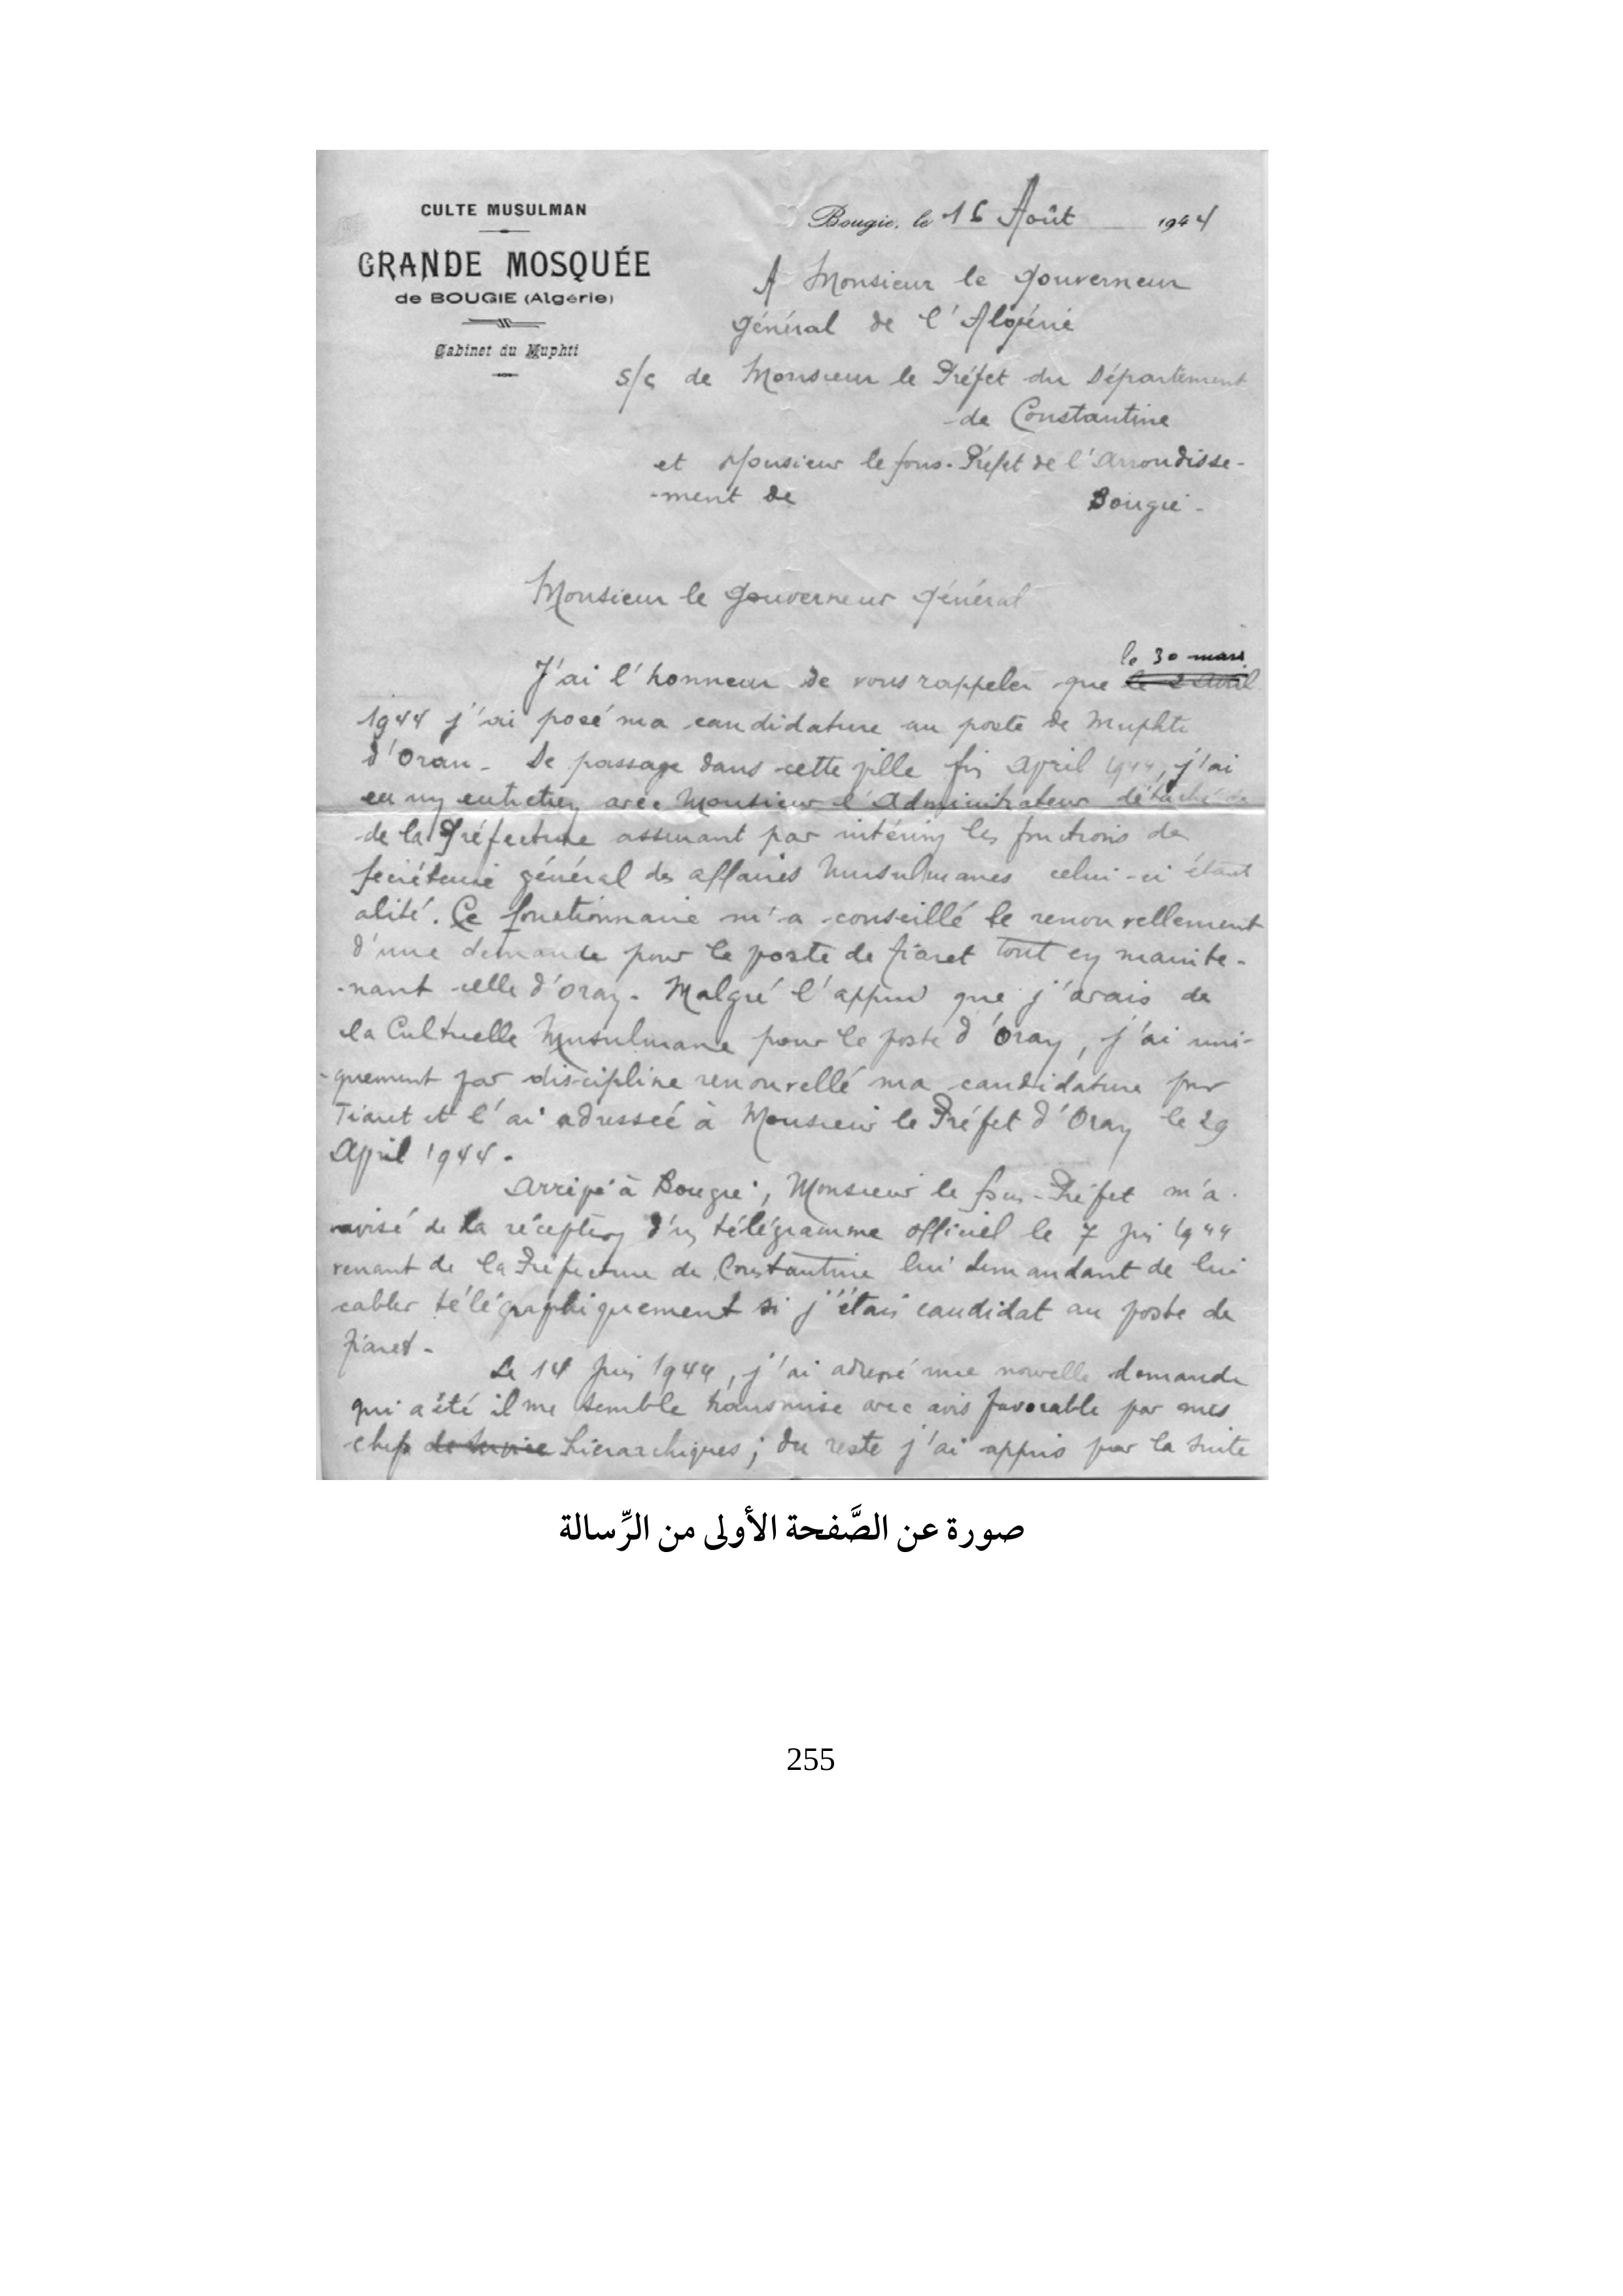 CULTE MUSULMAN
GRANDE MOSQUÉE
de BOUGIE (Algérie)
Cabinet du Muphti
Bougie, le 16 Août 1944
A Monsieur le Gouverneur
Général de l'Algérie
S/c de Monsieur le Préfet du Département
de Constantine
et Monsieur le Sous-Préfet de l'Arrondisse-
-ment de Bougie-
Monsieur le Gouverneur Général
le 30 mars
J'ai l'honneur de vous rappeler que le 2 Avril
1944 j'ai posé ma candidature au poste de Muphti
d'Oran- De passage dans cette ville fin April 1944, j'ai
eu un entretien avec Monsieur l'Administrateur détaché de
de la Préfecture assurant par intérim les fonctions de
Secrétaire général des affaires Musulmanes celui-ci étant
alité. Ce fonctionnaire m'a conseillé le renouvellement
d'une demande pour le poste de Tiaret tout en mainte-
-nant celle d'Oran. Malgré l'appui que j'avais de
la Cultuelle Musulmane pour le poste d'Oran, j'ai uni-
-quement par discipline renouvellé ma candidature pour
Tiaret et l'ai adressée à Monsieur le Préfet d'Oran le 29
April 1944.
Arrivé à Bougie, Monsieur le Sous-Préfet m'a
avisé de la réception d'un télégramme officiel le 7 Juin 1944
venant de la Préfecture de Constantine lui demandant de lui
cabler télégraphiquement si j'étais candidat au poste de
Tiaret-
Le 14 Juin 1944, j'ai adressé une nouvelle demande
qui a été il me semble transmise avec avis favorable par mes
chefs de service hierarchiques; du reste j'ai appris par la suite
صورة عن الصَّفحة الأولى من الرِّسالة
255